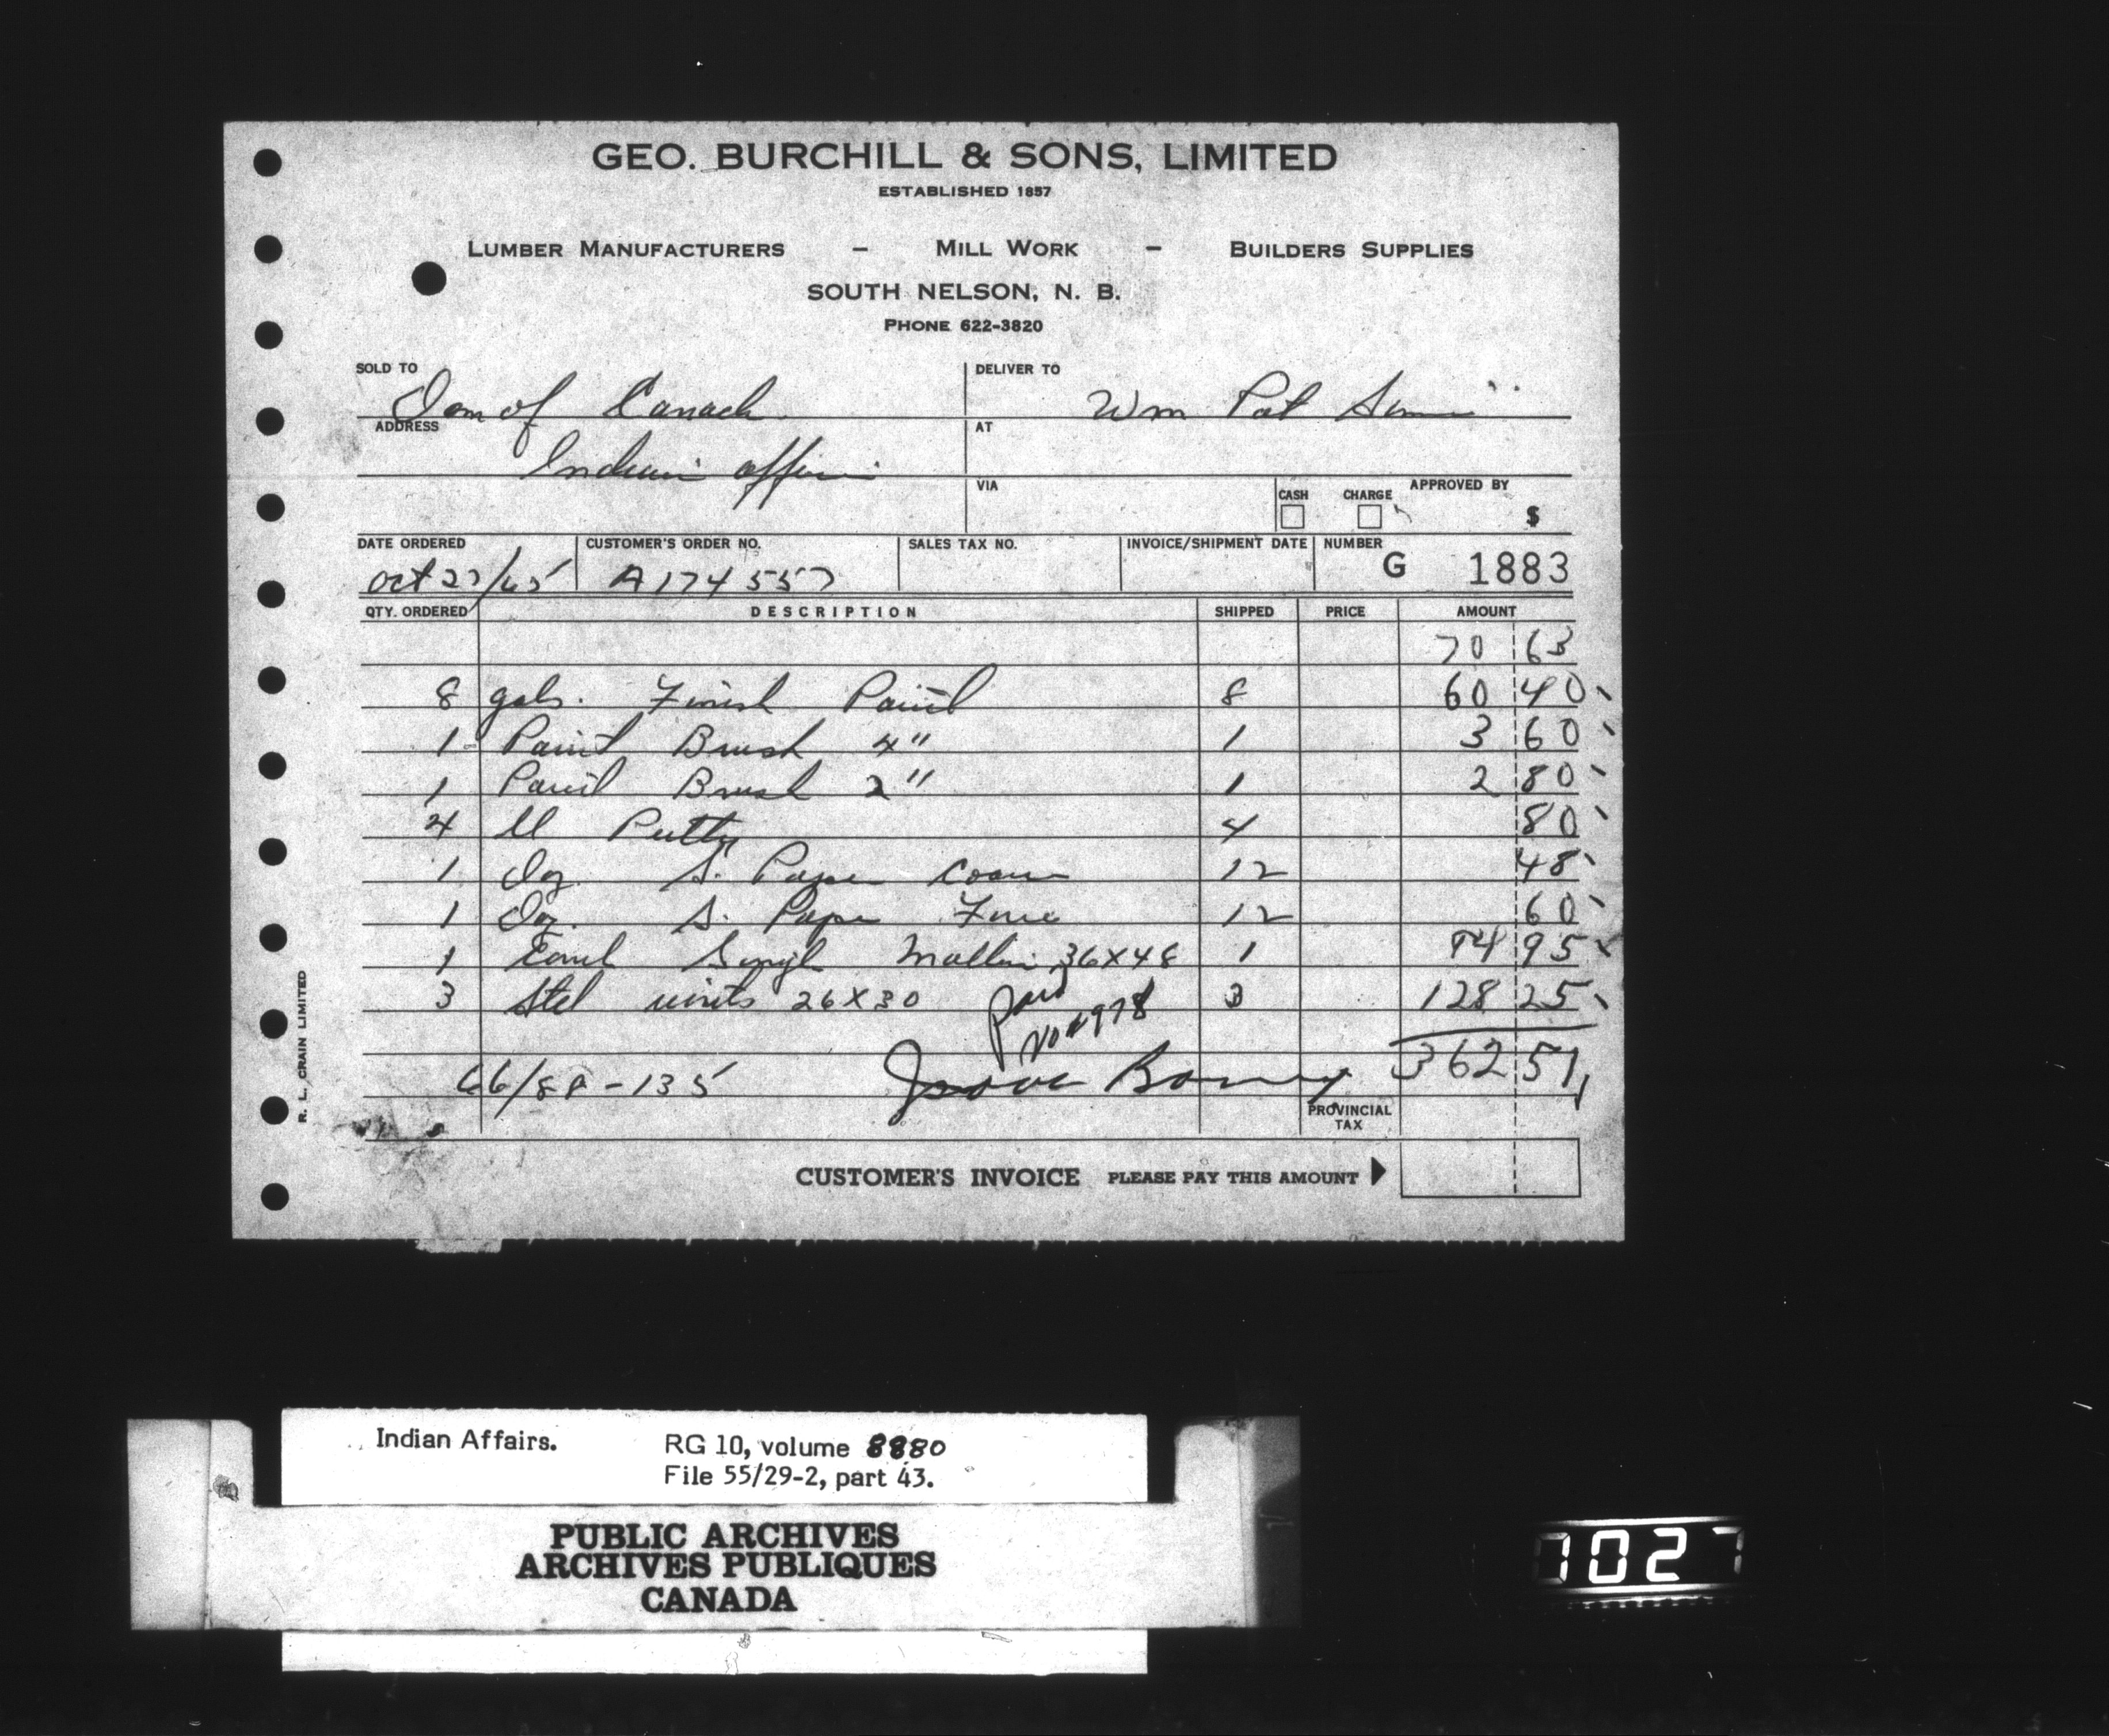 GEO. BURCHILL & SONS, LIMITED
ESTABLISHED 1857
LUMBER MANUFACTURERS – MILL WORK – BUILDERS SUPPLIES
SOUTH NELSON, N. B.
PHONE 622-3820
SOLD TO Dom of Canada
DELIVER TO Wm Pat
ADDRESS
AT
Indian Affairs
VIA
CASH CHARGE APPROVED BY
$
DATE ORDERED CUSTOMER'S ORDER NO. SALES TAX NO. INVOICE/SHIPMENT DATE NUMBER
Oct 27/65 A174557 G 1883
QTY. ORDERED DESCRIPTION SHIPPED PRICE AMOUNT
70 63
8 gals. Finish Paint 8 60 40
1 Paint Brush 4" 1 3 60
1 Paint Brush 2" 1 2 80
4 lb Putty 4 80
1 Doz. S. Paper Coarse 12 48
1 Doz. S. Paper Fine 12 60
1 36X48 1 94 95
3 units 26X30 3 128 25
Paid
362 51
66/88-135
PROVINCIAL
TAX
CUSTOMER'S INVOICE PLEASE PAY THIS AMOUNT
R. L. CRAIN LIMITED
Indian Affairs. RG 10, volume 8880
File 55/29-2, part 43.
PUBLIC ARCHIVES
ARCHIVES PUBLIQUES
CANADA
7027